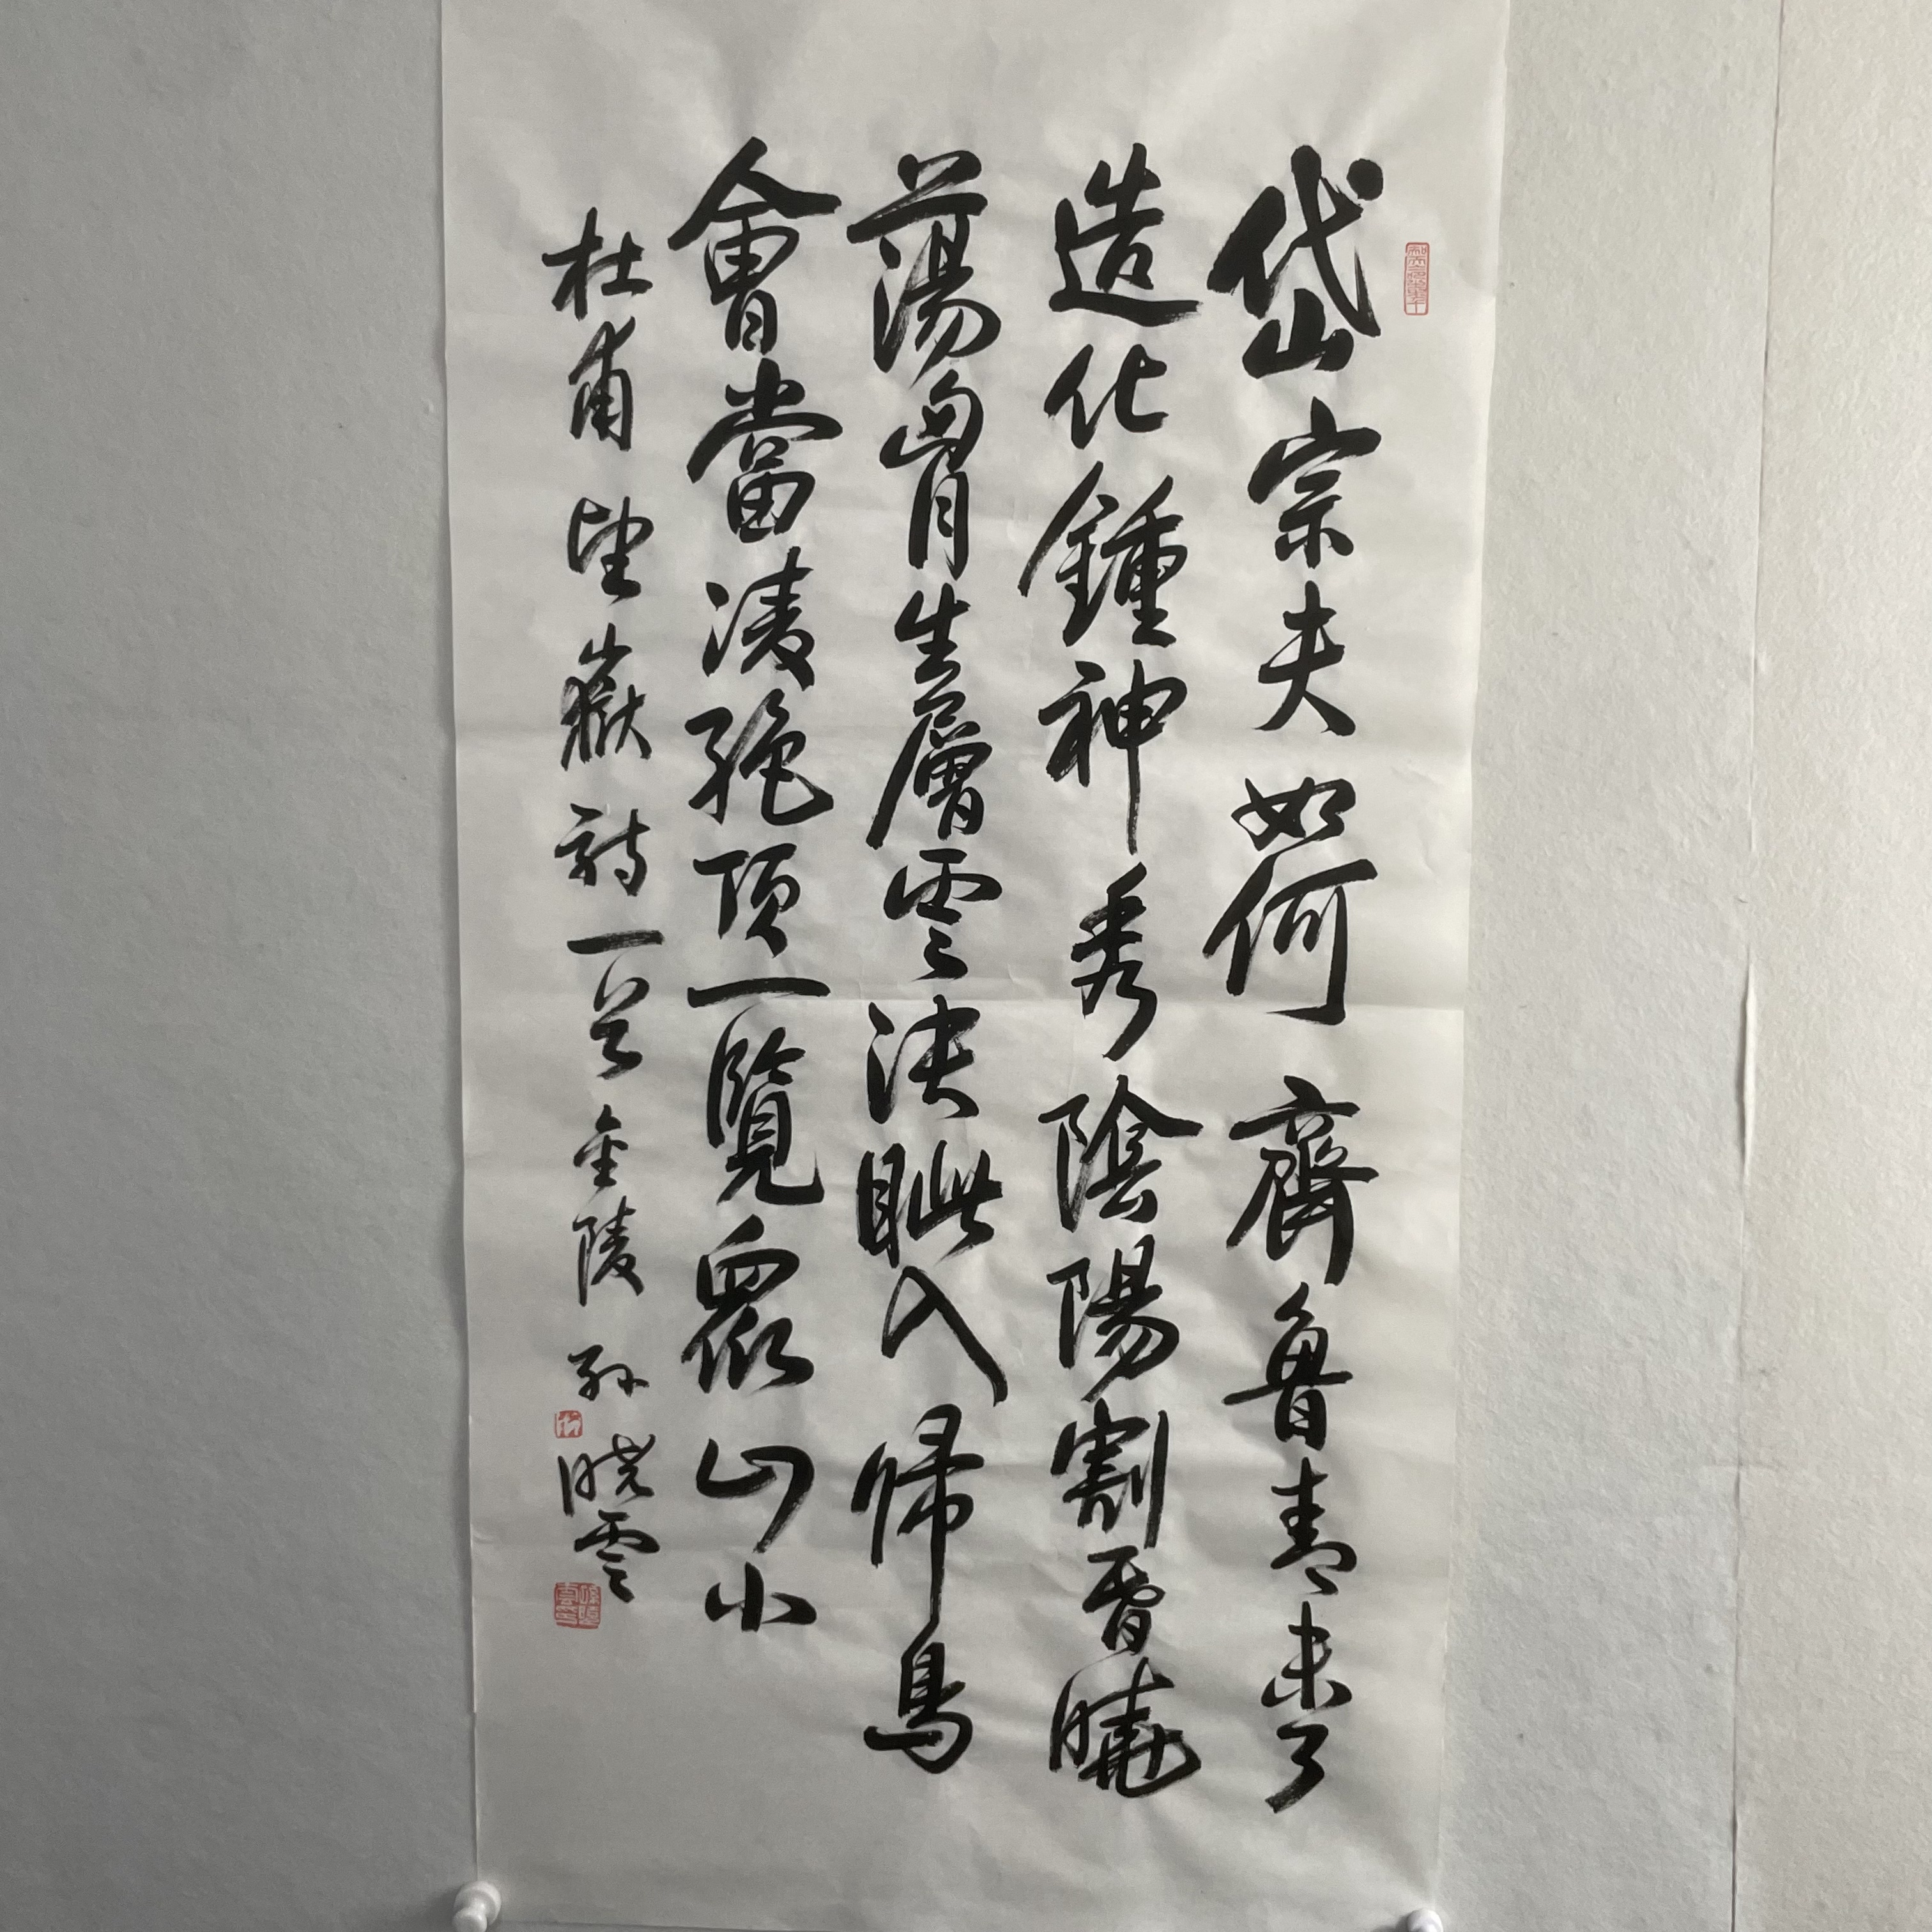 岱宗夫如何齊魯青未了
造化鍾神秀陰陽割昏曉
蕩胷生層雲決眦入歸鳥
會當凌絕頂一覽眾山小
杜甫望嶽詩一首金陵孫曉雲